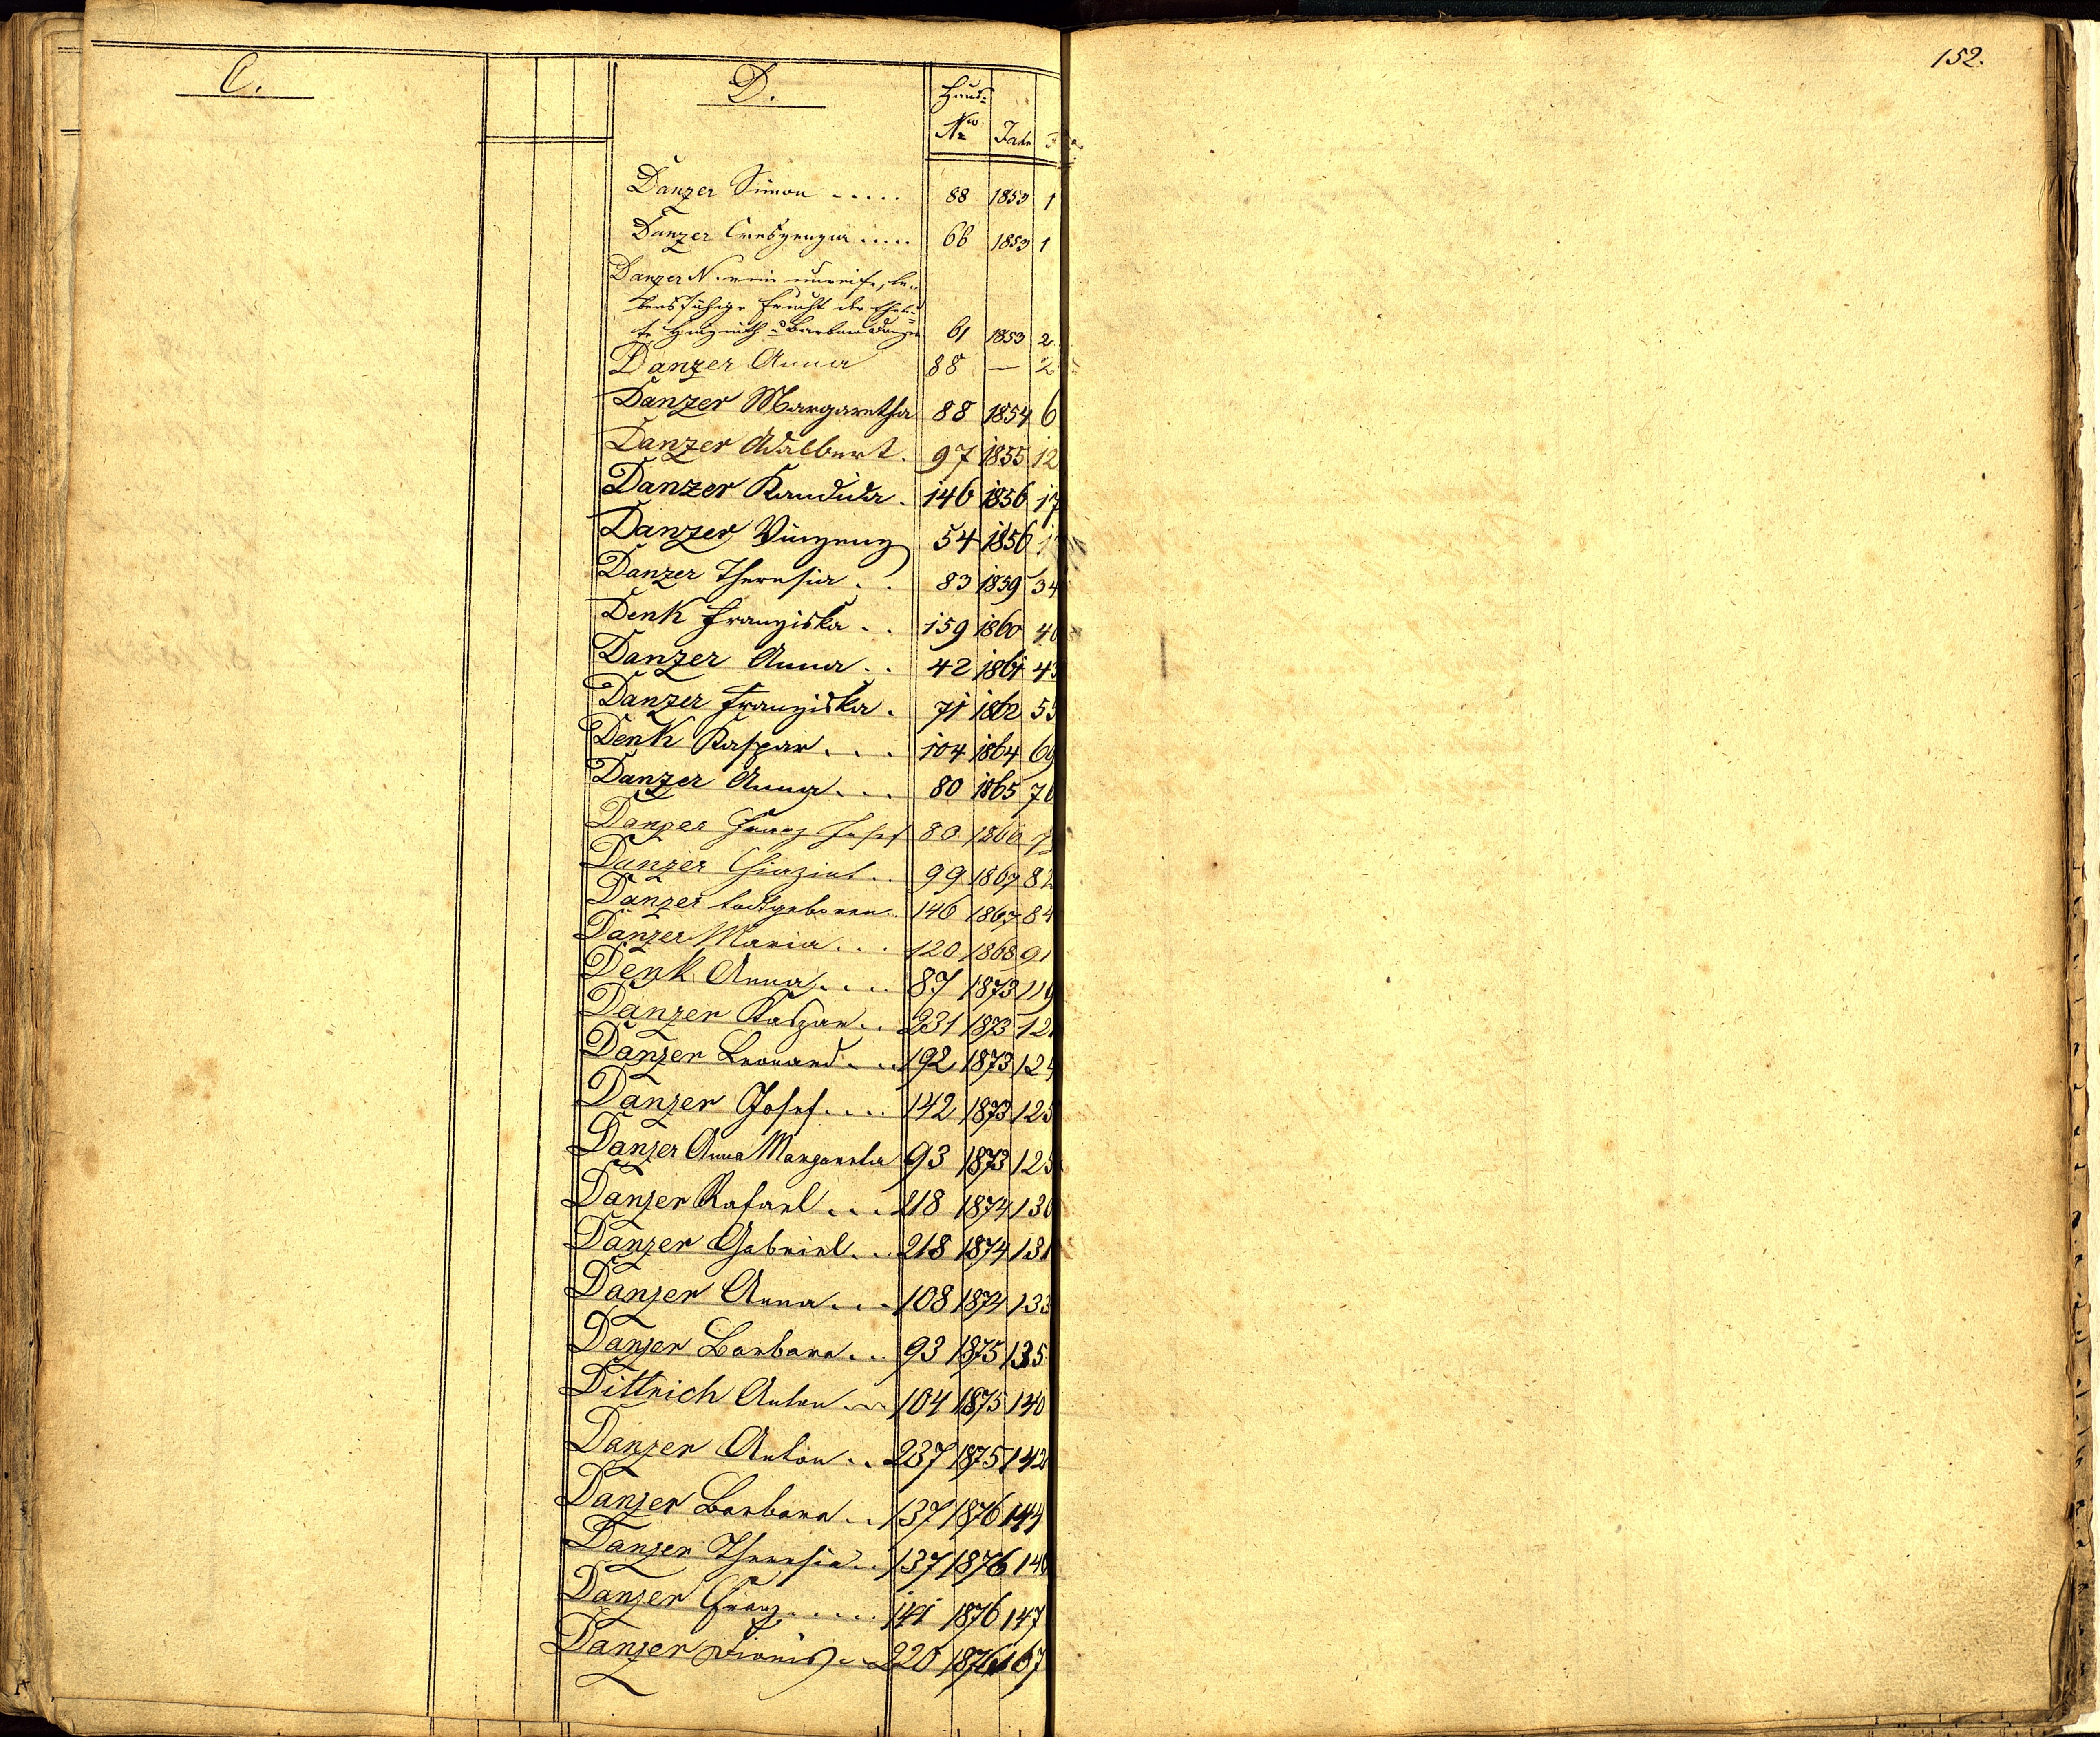 152.
C.
D.
Haus=
Nro Jahr
Danzer Simon ..... 88 1853 1
Danzer Creszenzia ..... 66 1853 1
Danzer N. eine unreife, le-
bensfähige Frucht der Eheleu-
te Hyazinth u Barbara Danzer 61 1853 2
Danzer Anna 88 — 2
Danzer Margaretha 88 1854 6
Danzer Adalbert. 97 1855 12
Danzer Kandida. 146 1856 17
Danzer Vinzenz 54 1856
Danzer Theresia . . 83 1859 34
Denk Franziska . . 159 1860 40
Danzer Anna . . 42 1861 43
Danzer Franziska . 71 1862 55
Denk Kaspar . . . 104 1864 69
Danzer Anna . . . 80 1865 70
Danzer Franz Josef 80 1866
Danzer Hiazint . . 99 1867 82
Danzer todtgeboren . . 146 1867 84
Danzer Maria . . . 120 1868 91
Denk Anna . . . . 87 1873 119
Danzer Kaspar . . 231 1873 121
Danzer Leonard . . . 192 1873 124
Danzer Josef . . . . 142 1873 125
Danzer Anna Margareta 93 1873 125
Danzer Rafael . . . 218 1874 130
Danzer Gabriel . . . 218 1874 131
Danzer Anna . . . 108 1874 133
Danzer Barbara . . . 93 1875 135
Dittrich Anton . . . 104 1875 140
Danzer Anton . . 237 1875 142
Danzer Barbara . . 137 1876 144
Danzer Theresia . . 137 1876 146
Danzer Franz . . . . . 141 1876 147
Danzer Dionis . . 220 1876 167